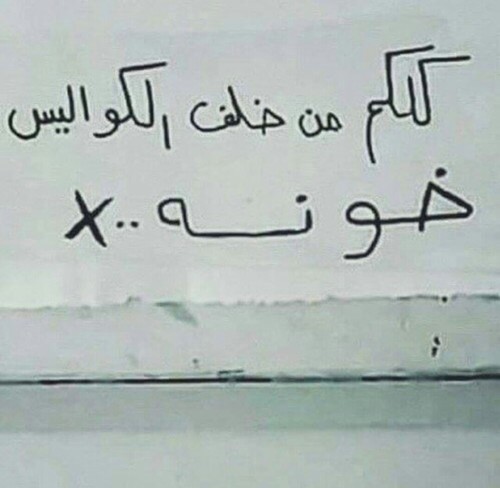 كلكم من خلف الكواليس
خونـــه..x